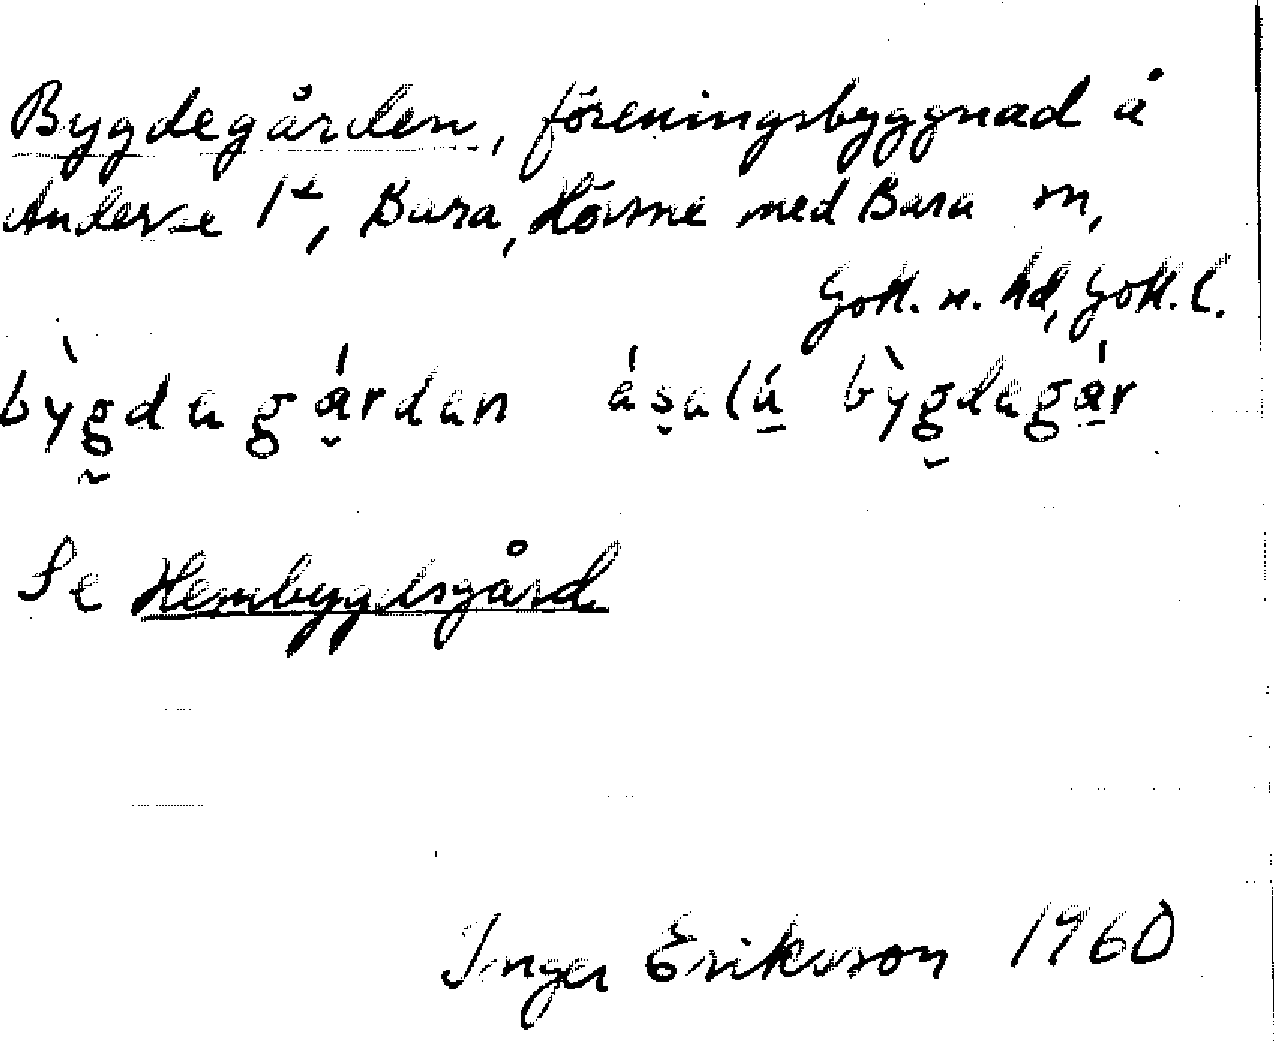 Bygdegården, föreningsbyggnad å
Anderse 1⁴, Bara, Hörsne med Bara sn,
Gotl. n. hd, Gotl. l.
bỳg̰dagá̬rdan ás̬alú̱ bỳg̬dagá̱r
Se Hembygdsgård
Inger Eriksson 1960